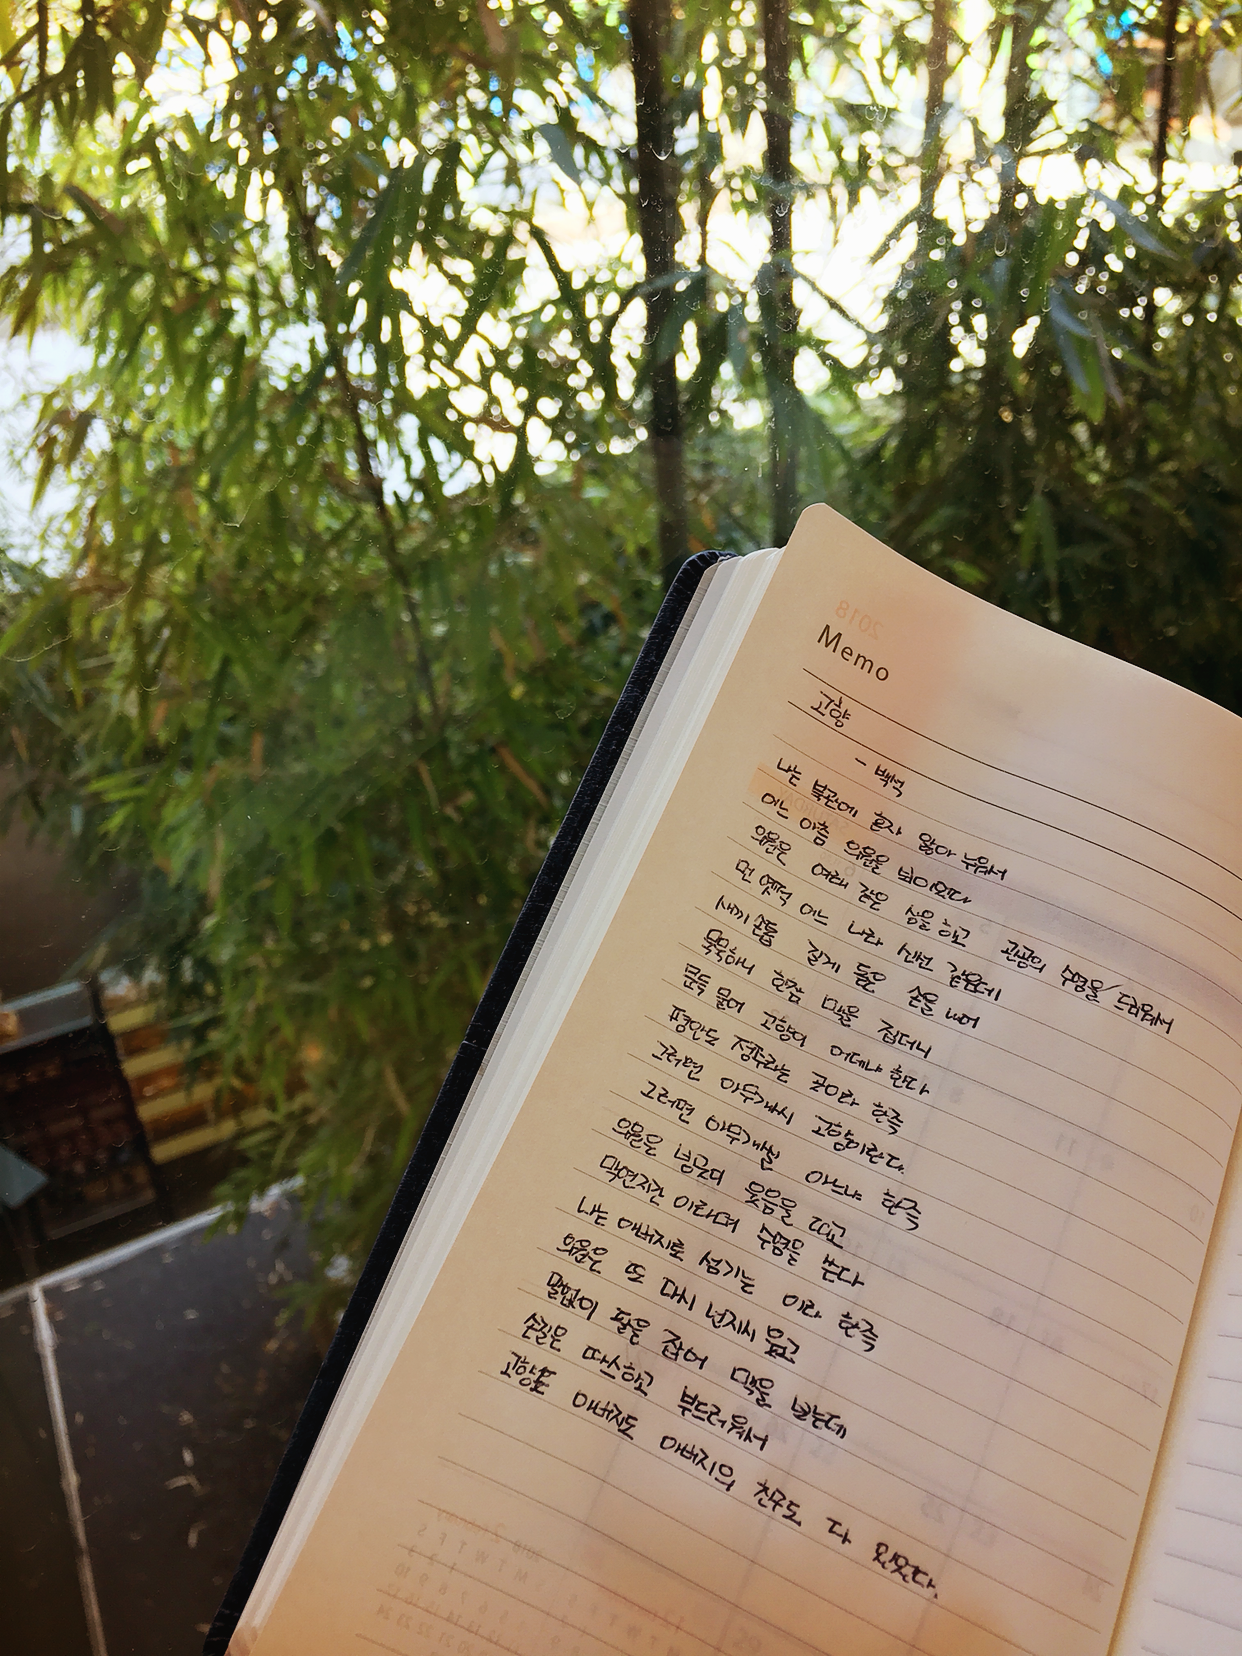 2018
Memo
고향
- 백석
나는 북관에 혼자 앓아 누워서
어느 아츰 의원을 뵈이었다
의원은 여래 같은 상을 하고 관공의 수염을 드리워서
먼 옛적 어느 나라 신선 같은데
새끼손톱 길게 돋은 손을 내어
묵묵하니 한참 맥을 집더니
문득 물어 고향이 어데냐 한다
평안도 정주라는 곳이라 한즉
그러면 아무개씨 고향이란다.
그러면 아무개씰 아느냐 한즉
의원은 빙긋이 웃음을 띠고
막역지간 이라며 수염을 쓴다
나는 아버지로 섬기는 이라 한즉
의원은 또 다시 넌지시 웃고
말없이 팔을 잡어 맥을 보는데
손길은 따스하고 부드러워서
고향도 아버지도 아버지의 친구도 다 있었다.